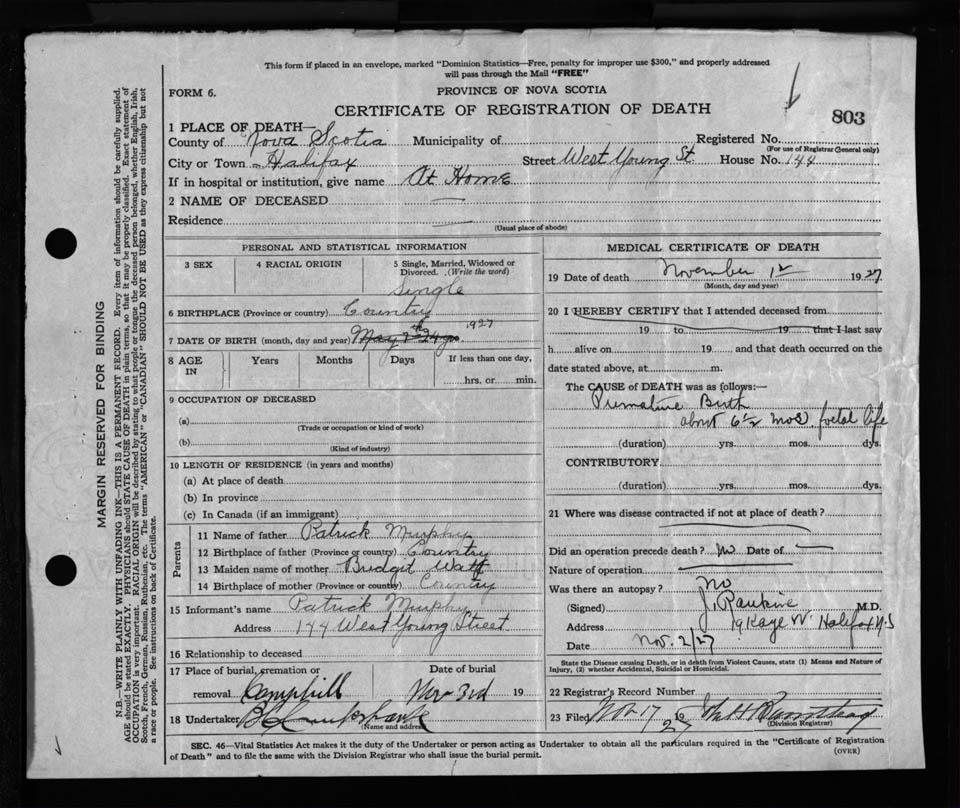 This form if placed in an envelope, marked "Dominion Statistics—Free, penalty for improper use $300," and properly addressed
will pass through the Mail "FREE"
FORM 6.
PROVINCE OF NOVA SCOTIA
CERTIFICATE OF REGISTRATION OF DEATH
803
1 PLACE OF DEATH—
County of Nova Scotia Municipality of Registered No.
(For use of Registrar General only)
City or Town Halifax Street West Young St House No. 144
If in hospital or institution, give name At Home
2 NAME OF DECEASED
Residence
(Usual place of abode)
PERSONAL AND STATISTICAL INFORMATION
3 SEX 4 RACIAL ORIGIN 5 Single, Married, Widowed or
Divorced. (Write the word)
Single
6 BIRTHPLACE (Province or country) Country
7 DATE OF BIRTH (month, day and year) May 1927
8 AGE IN Years Months Days If less than one day,
hrs. or min.
9 OCCUPATION OF DECEASED
(a)
(Trade or occupation or kind of work)
(b)
(Kind of industry)
10 LENGTH OF RESIDENCE (in years and months)
(a) At place of death
(b) In province
(c) In Canada (if an immigrant)
Parents
11 Name of father Patrick Murphy
12 Birthplace of father (Province or country) Country
13 Maiden name of mother Bridget Watt
14 Birthplace of mother (Province or country) Country
15 Informant's name Patrick Murphy
Address 144 West Young Street
16 Relationship to deceased
17 Place of burial, cremation or Date of burial
removal Camphill Nov 3rd 19
18 Undertaker
(Name and address)
MEDICAL CERTIFICATE OF DEATH
19 Date of death November 1st 1927
(Month, day and year)
20 I HEREBY CERTIFY that I attended deceased from
19 to 19 that I last saw
h alive on 19 and that death occurred on the
date stated above, at m.
The CAUSE of DEATH was as follows:—
Premature Birth
about 6½ mos foetal life
(duration) yrs. mos. dys.
CONTRIBUTORY
(duration) yrs. mos. dys.
21 Where was disease contracted if not at place of death?
Did an operation precede death? No Date of
Nature of operation
Was there an autopsy? No
(Signed) J. Rankine M.D.
Address 19 Kaye St Halifax N.S
Date Nov. 2/27
State the Disease causing Death, or in death from Violent Causes, state (1) Means and Nature of
Injury, (2) whether Accidental, Suicidal or Homicidal.
22 Registrar's Record Number
23 Filed Nov 17 27
(Division Registrar)
SEC. 46—Vital Statistics Act makes it the duty of the Undertaker or person acting as Undertaker to obtain all the particulars required in the "Certificate of Registration
of Death" and to file the same with the Division Registrar who shall issue the burial permit.
(OVER)
MARGIN RESERVED FOR BINDING
N.B.—WRITE PLAINLY WITH UNFADING INK—THIS IS A PERMANENT RECORD. Every item of information should be carefully supplied.
AGE should be stated EXACTLY. PHYSICIANS should STATE CAUSE OF DEATH in plain terms, so that it may be properly classified. Exact statement of
OCCUPATION is very important. RACIAL ORIGIN will be described by stating to what people or tongue the deceased person belonged, whether English, Irish,
Scotch, French, German, Russian, Ruthenian, etc. The terms "AMERICAN" or "CANADIAN" SHOULD NOT BE USED as they express citizenship but not
a race or people. See instructions on back of Certificate.